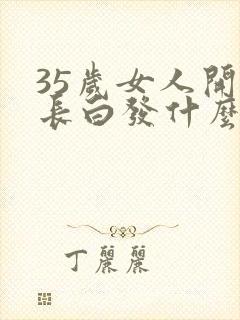 35歲女人開
長白發什麼
丁麗麗